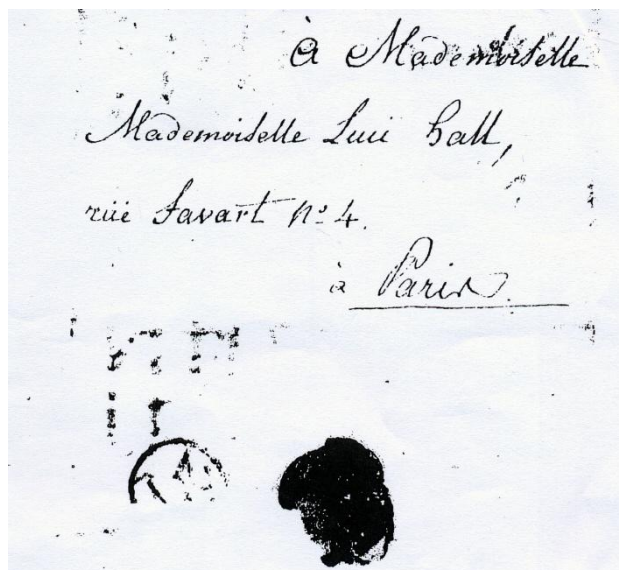 à Mademoiselle
Mademoiselle Luci Hall,
rüe favart nº 4.
à Paris